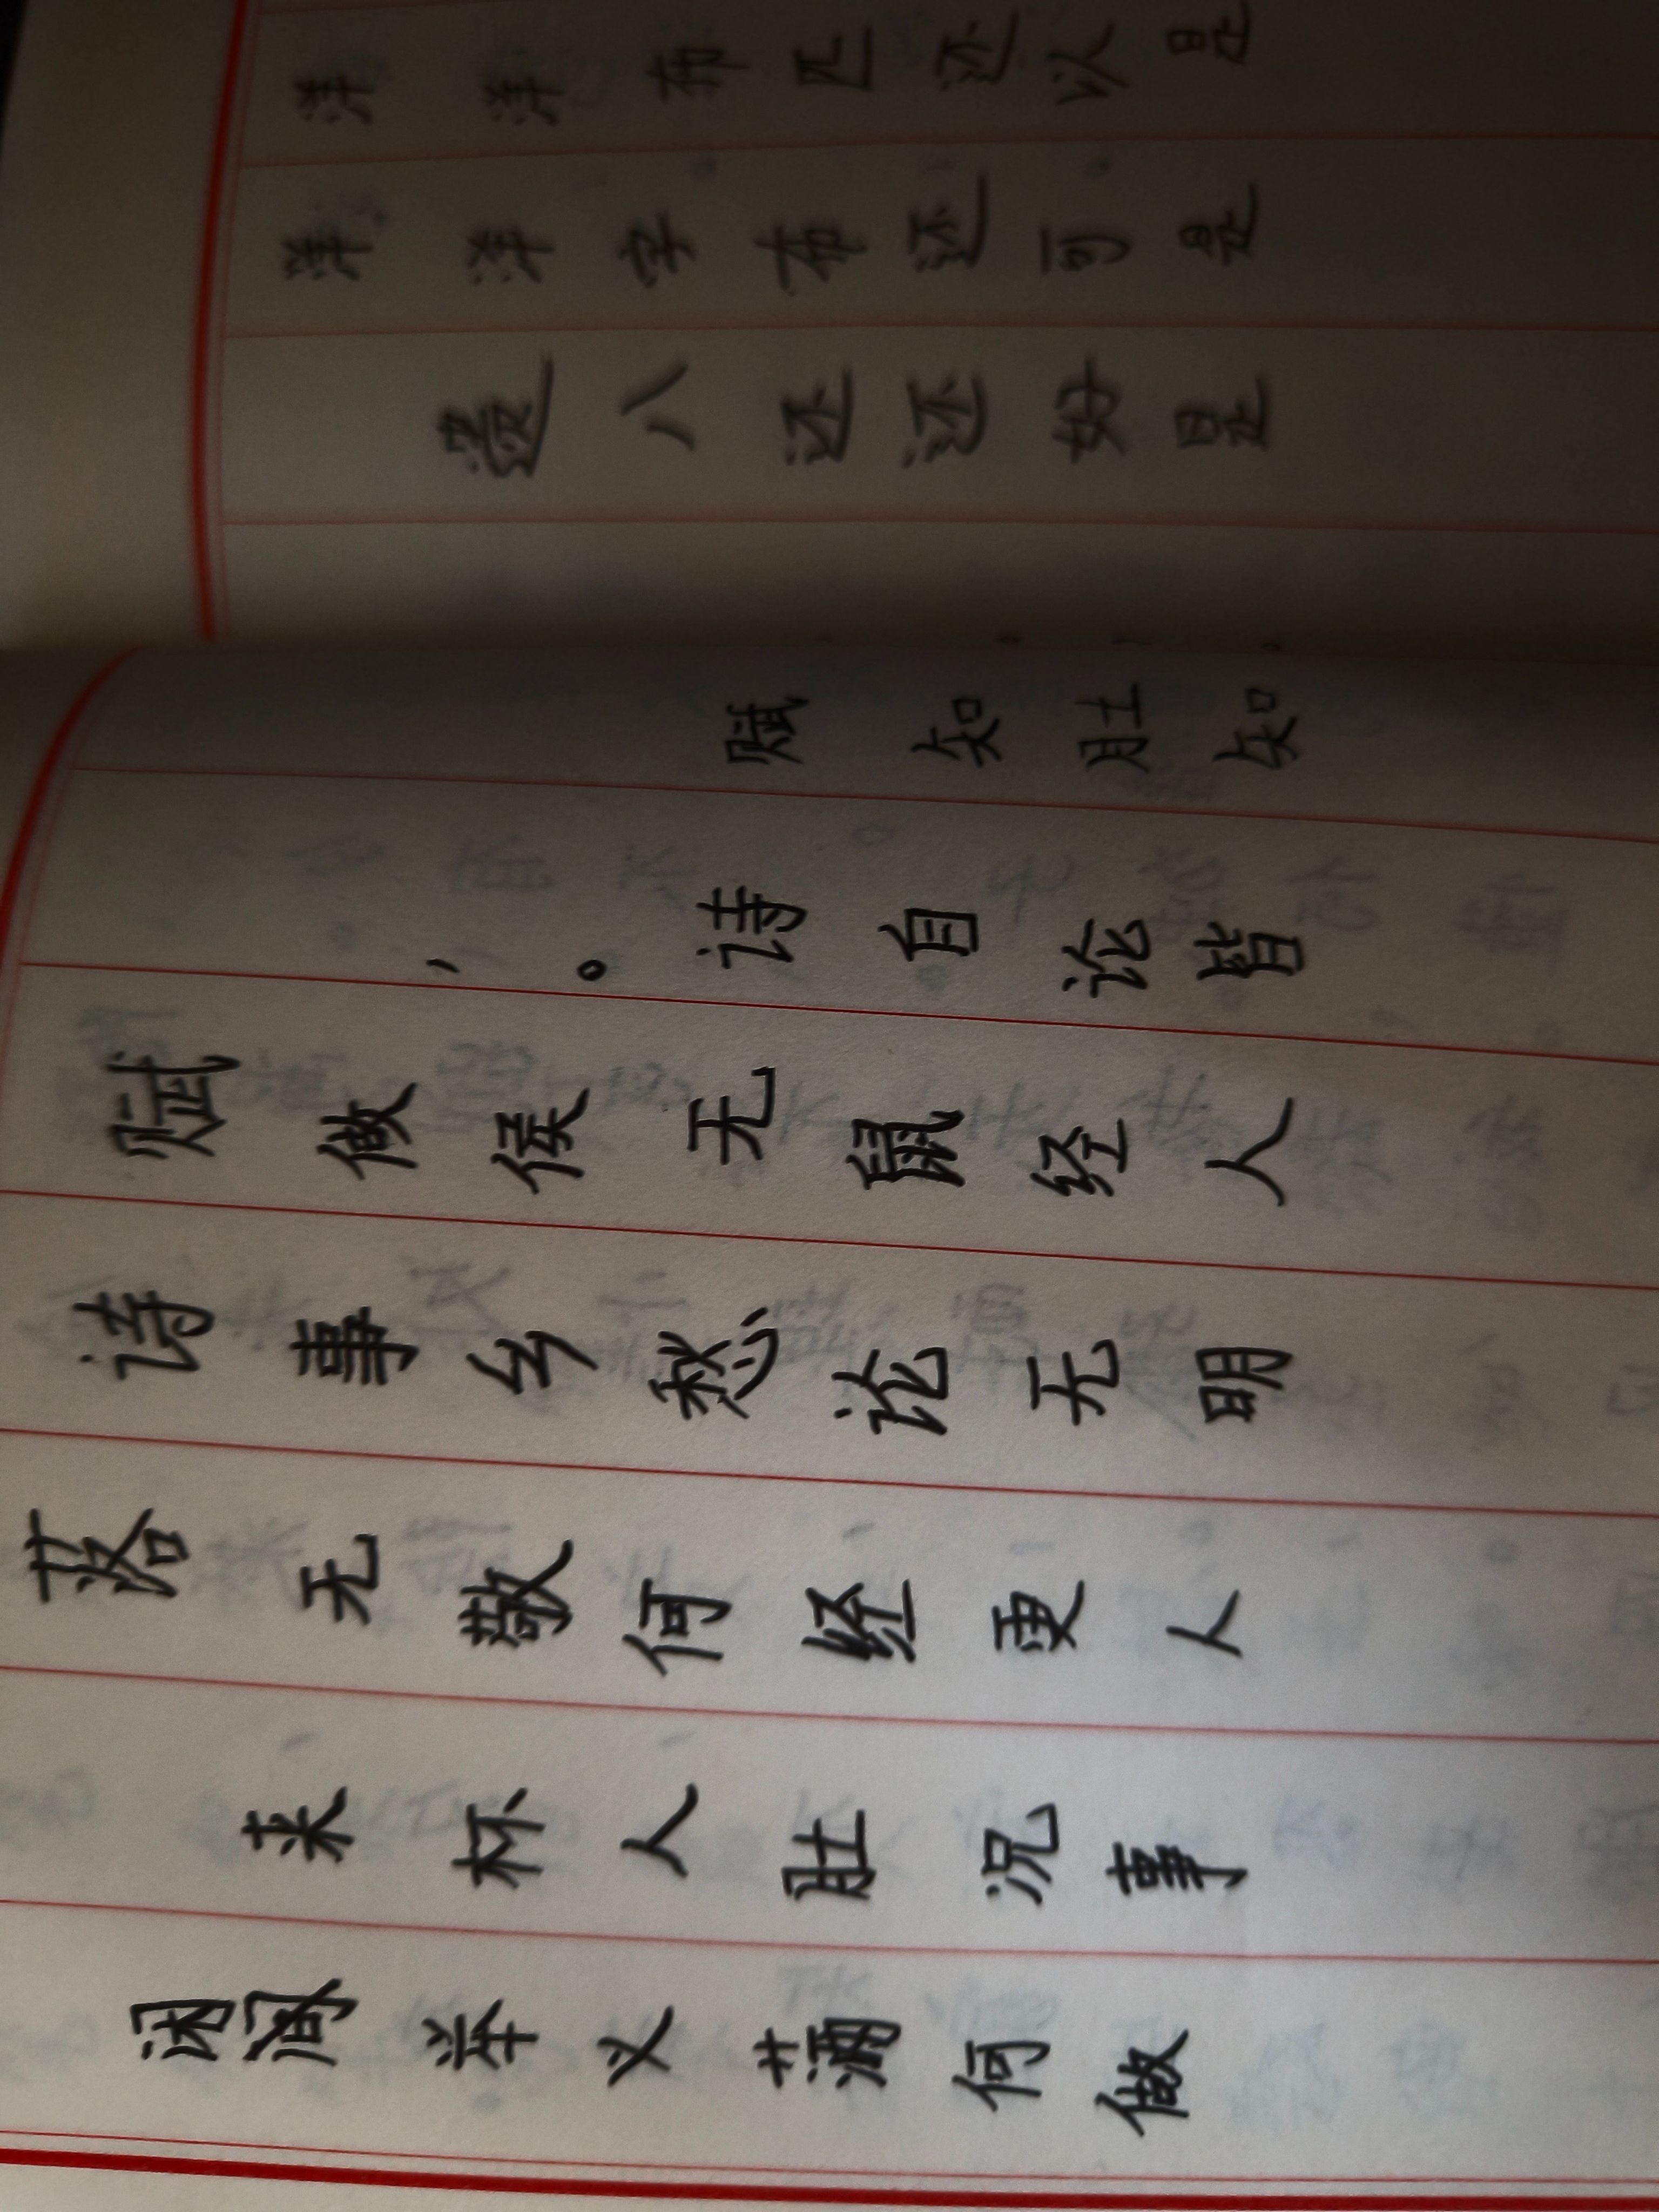 落诗赋
闲来无事做，
举杯敬乡侯。
义人何愁无诗赋
满肚经论鼠自知，
何况更无经论肚，
做事人明人皆知。
洋洋
遗洋洋
八字布
还布匹
还还还
好可以
是是是